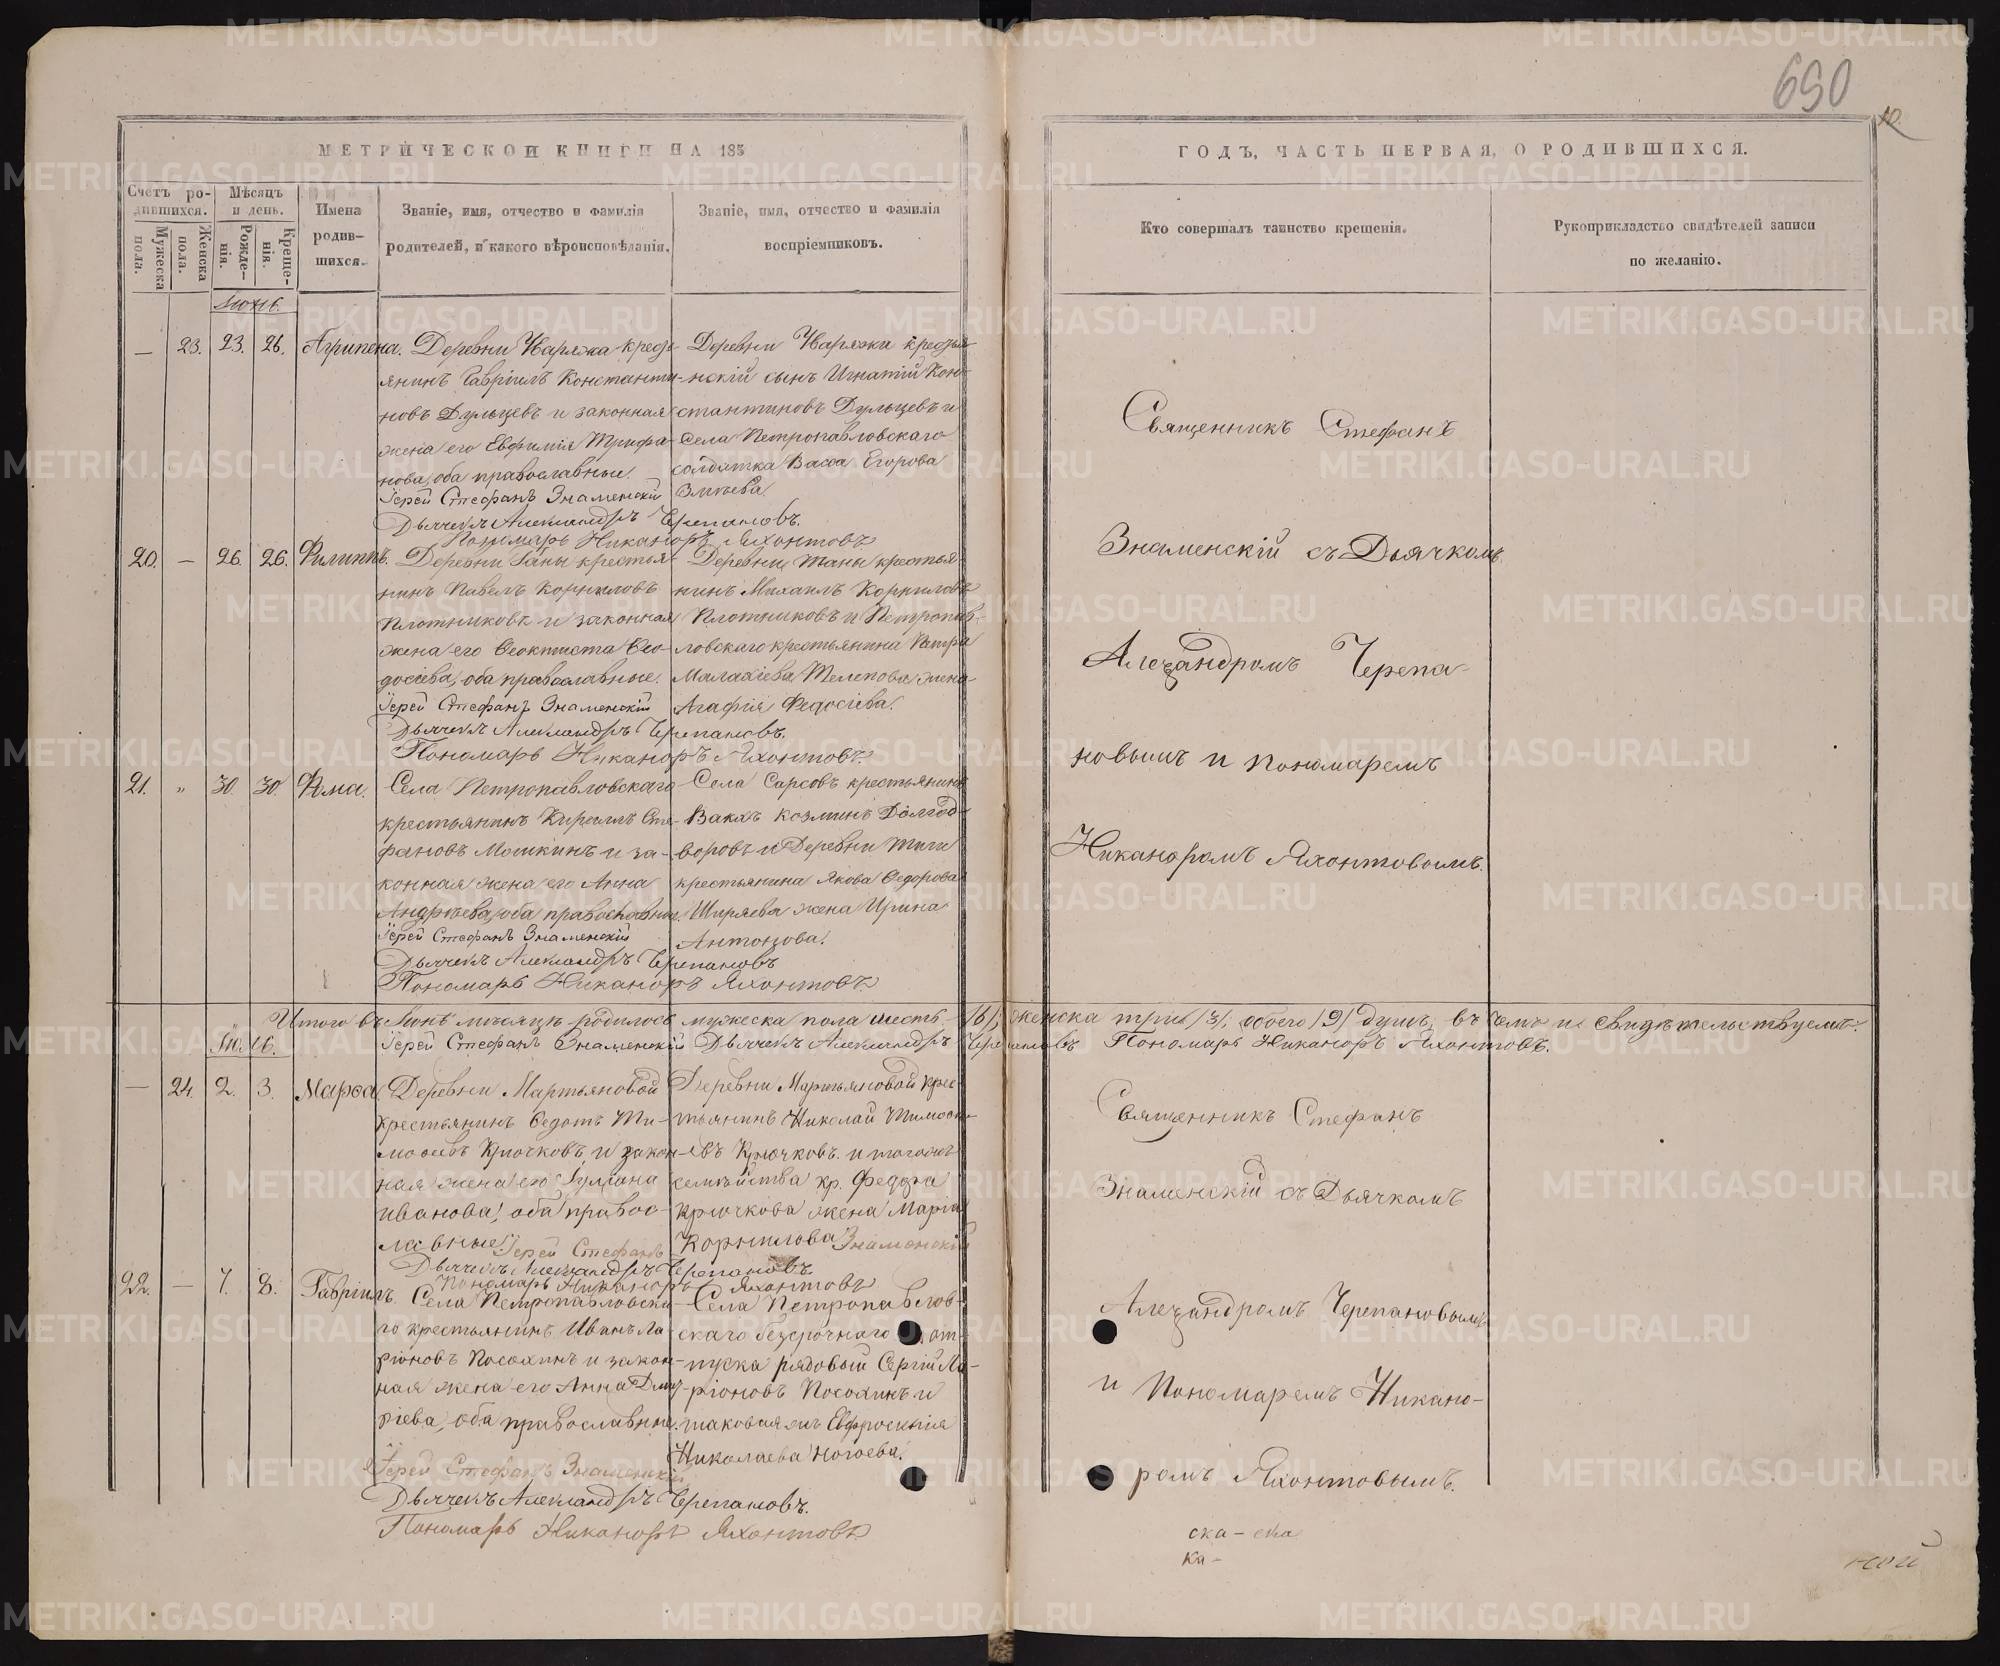 690
10.
МЕТРИЧЕСКОЙ КНИГИ НА 185
ГОДЪ, ЧАСТЬ ПЕРВАЯ, О РОДИВШИХСЯ.
Счетъ родившихся.
Мужеска пола.
Женска пола.
Мѣсяцъ и день.
Рожденія.
Крещенія.
Имена родившихся.
Званіе, имя, отчество и фамилія
родителей, и какого вѣроисповѣданія.
Званіе, имя, отчество и фамилія
воспріемниковъ.
Кто совершалъ таинство крещенія.
Рукоприкладство свидѣтелей записи
по желанію.
Іюнь.
— 23. 23. 26. Агрипена.
янинъ Гавріилъ Константи-
новъ Дульцевъ и законная
жена его Евфимія Трифа-
нова, оба православные.
Іерей Стефанъ Знаменскій
Дьячекъ Александръ Черепановъ.
Пономарь Никаноръ Яхонтовъ
нскій сынъ Игнатій Кон-
стантиновъ Дульцевъ и
села Петропавловскаго
солдатка Васса Егорова
Змѣева.
Священникъ Стефанъ
Знаменскій съ Дьячкомъ
Алеѯандромъ Черепа-
новымъ и пономаремъ
Никаноромъ Яхонтовымъ.
20. — 26. 26. Филиппъ.
Деревни Таны крестья-
нинъ Павелъ Корниловъ
Плотниковъ и законная
жена его Ѳеоктиста Ѳео-
досіева, оба православные.
Іерей Стефанъ Знаменскій
Дьячекъ Александръ Черепановъ.
Пономарь Никаноръ Яхонтовъ.
Деревни Таны крестья
нинъ Михаилъ Корниловъ
Плотниковъ и Петропав-
ловскаго крестьянина Петра
Малахіева Телепова жена
Агафія Федосіева.
21. „ 30. 30. Фома.
Села Петропавловскаго
крестьянинъ Кириллъ Сте-
фановъ Мошкинъ и за-
конная жена его Анна
Андреева, оба православные
Іерей Стефанъ Знаменскій
Дьячекъ Александръ Черепановъ
Пономарь Никаноръ Яхонтовъ.
Села Сарсовъ крестьянинъ
Вакхъ Козминъ Долгод-
воровъ и Деревни
крестьянина Якова Ѳедорова
Ширяева жена Ирина
Антонова.
Итого въ Іюнѣ мѣсяцѣ родилось мужеска пола шесть /6/, женска три /3/, обоего /9/ душъ, въ томъ и свидѣтельствуемъ:
Іерей Стефанъ Знаменскій Дьячекъ Александръ Черепановъ Пономарь Никаноръ Яхонтовъ.
Іюль.
— 24. 2. 3. Марѳа.
Деревни Мартьяновой
крестьянинъ Ѳедотъ Ти-
моѳеевъ Крючковъ и закон-
ная жена его Іуліана
Иванова, оба правос-
лавные. Іерей Стефанъ Знаменскій
Дьячекъ Александръ Черепановъ
Пономарь Никаноръ Яхонтовъ
Деревни Мартьяновой крес-
тьянинъ Николай Тимоѳе-
евъ Крючковъ и тогожъ
семейства кр. Федора
Крючкова жена Марія
Корнилова
Священникъ Стефанъ
Знаменскій съ Дьячкомъ
Алеѯандромъ Черепановымъ
и Пономаремъ Никано-
ромъ Яхонтовымъ.
22. — 7. 8. Гавріилъ.
Села Петропавловска-
го крестьянинъ Иванъ Ла-
ріоновъ Посохинъ и закон-
ная жена его Анна Дмит-
ріева, оба православные.
Іерей Стефанъ Знаменскій
Дьячекъ Александръ Черепановъ.
Пономарь Никаноръ Яхонтовъ
Села Петропавлов-
скаго безсрочнаго от-
пуска рядовый Сергій Ла-
ріоновъ Посохинъ и
Евфросинія
Николаева
ска-
ка-
METRIKI.GASO-URAL.RU